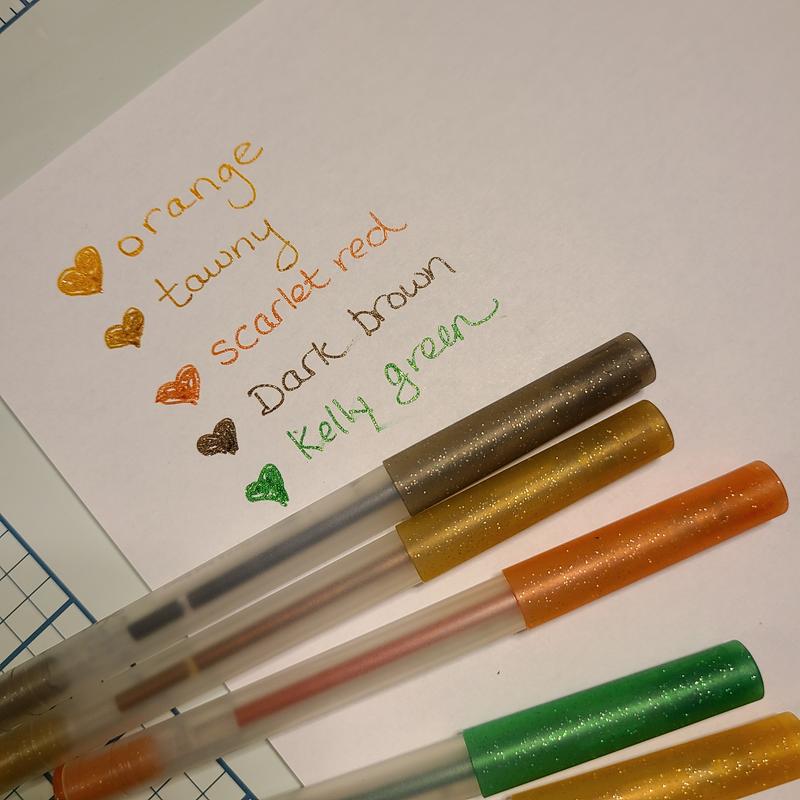 orange
tawny
scarlet red
Dark brown
Kelly green